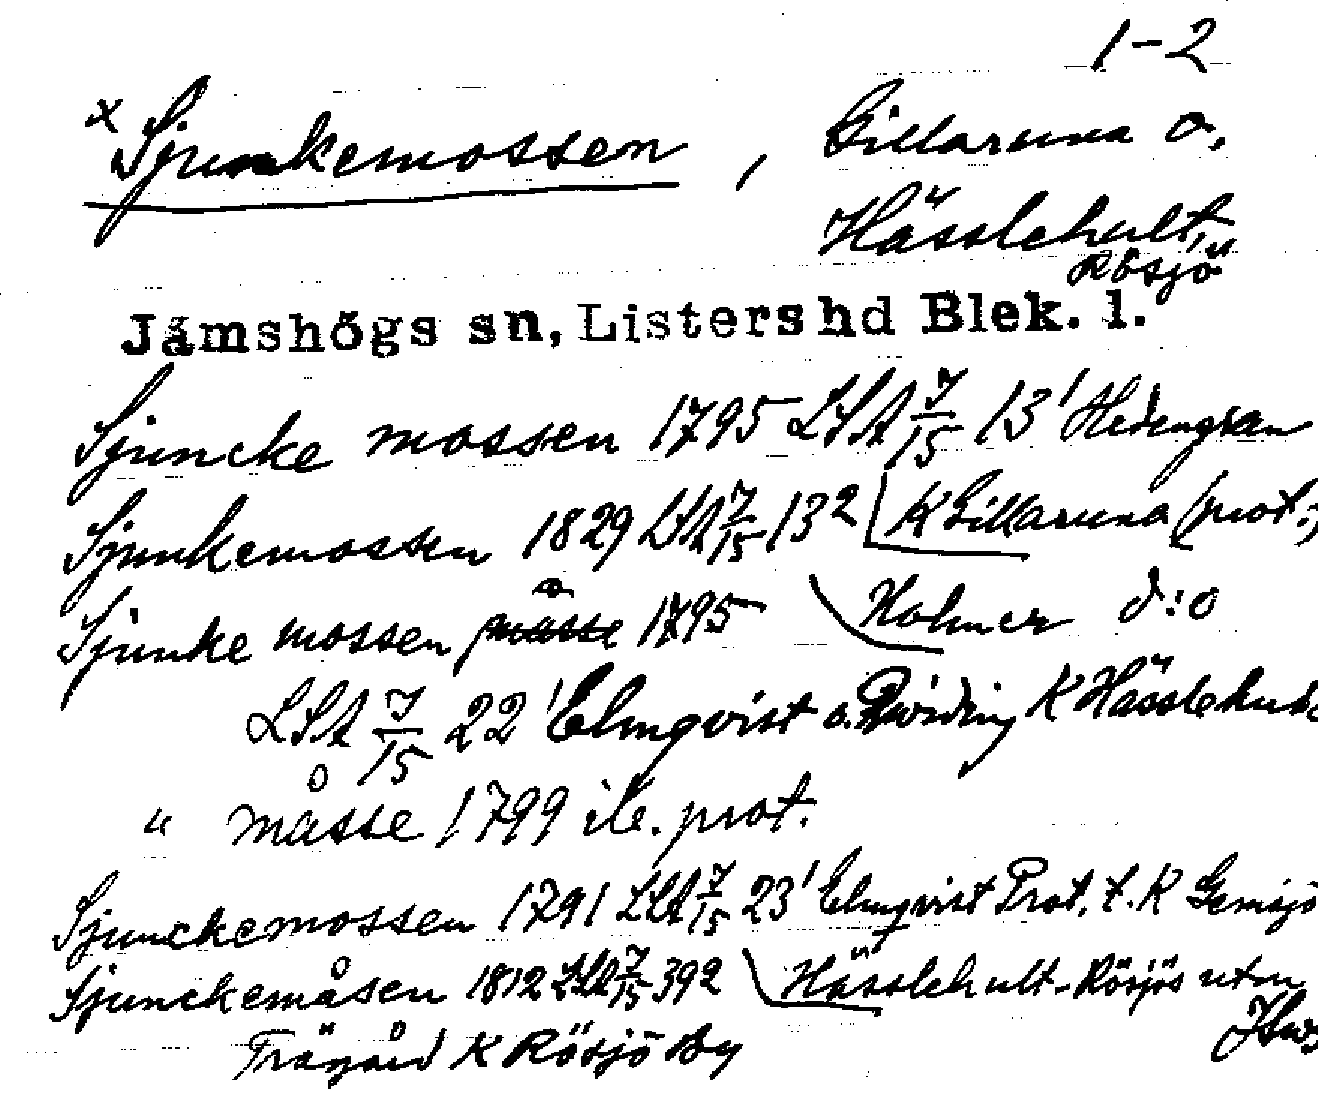 1-2
x Sjunkemossen, Gillaruna o.
Hässlehult,
Rösjö
Jämshögs sn, Listers hd Blek. l.
Sjuncke mossen 1795 LSA J/15 13¹ Hedengran
Sjunkemossen 1829 LSA J/15 13² K Gillaruna (prot.)
Sjunke mossen måsse 1795 Holmer d:o
LSA J/15 22¹ Elmqvist o. K Hässlehult
" måsse 1799 ib. prot.
Sjunckemossen 1791 LSA J/15 23¹ Elmqvist Prot. t. K Gemsjö
Sjunckemåsen 1812 LSA J/15 392 Hässlehult-Rösjös utm
Trägård K Rösjö By